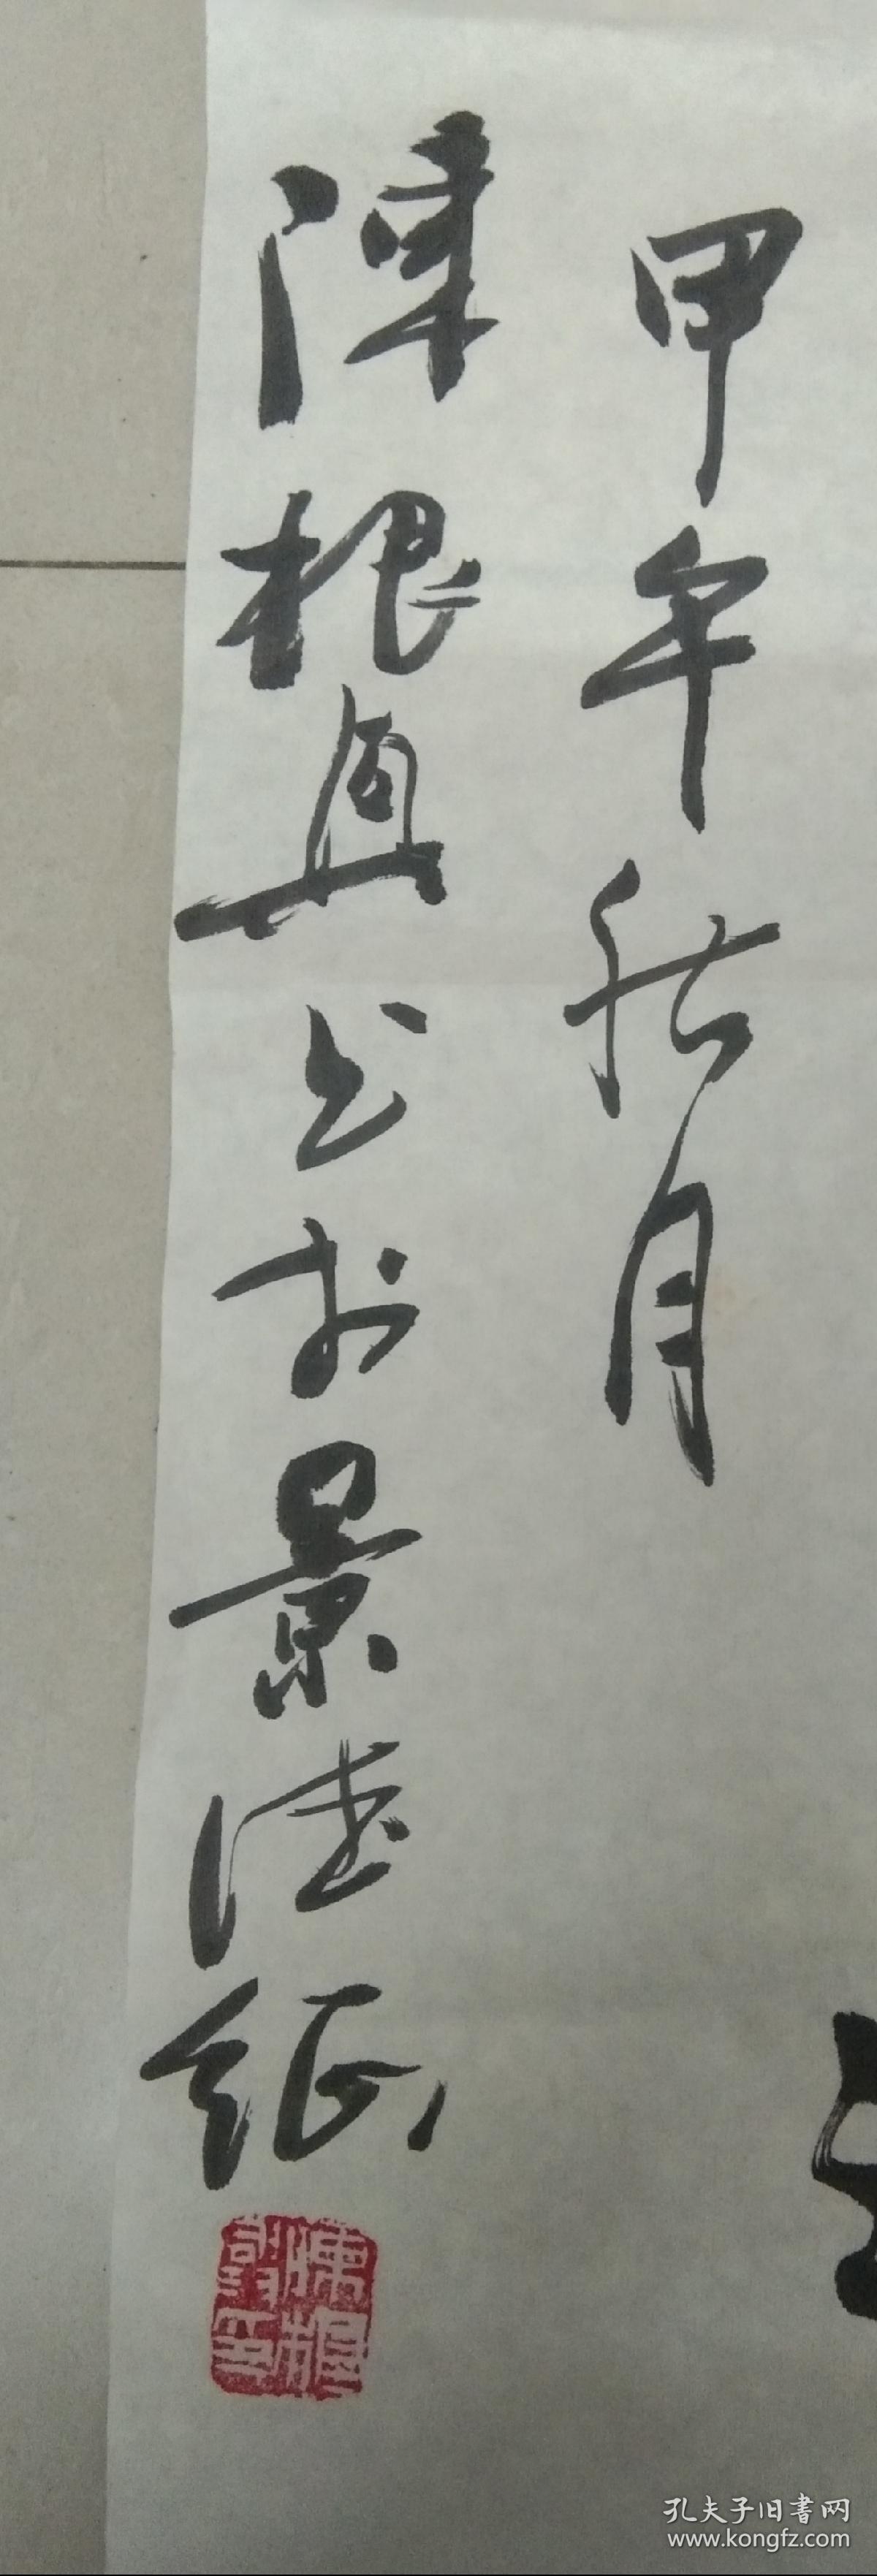 甲午秋月
陳根真书於景德纸
陳根真印
孔夫子旧書网
www.kongfz.com